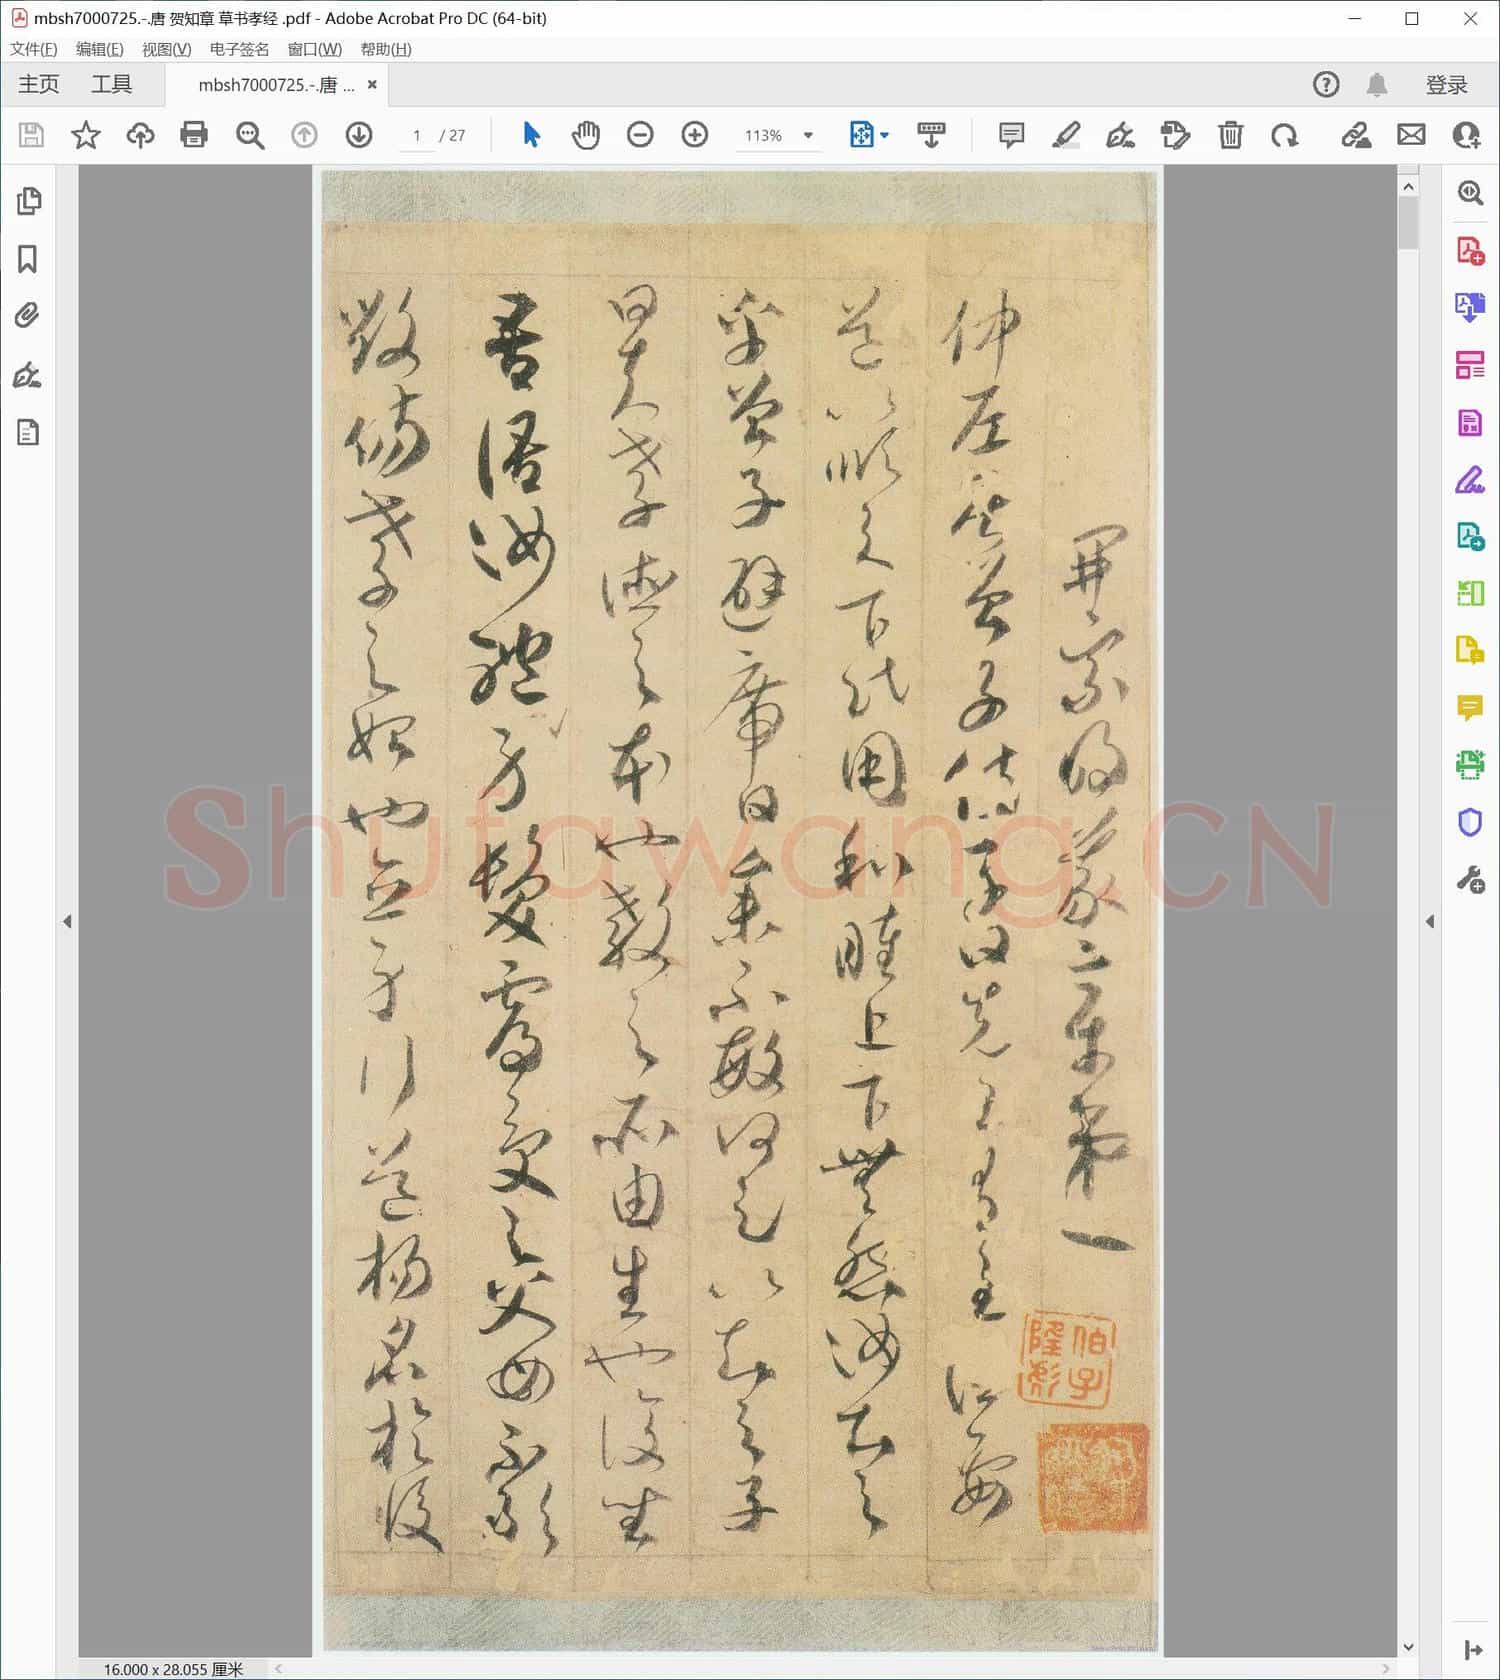 mbsh7000725.-.唐 贺知章 草书孝经 .pdf - Adobe Acrobat Pro DC (64-bit)
文件(F) 编辑(E) 视图(V) 电子签名 窗口(W) 帮助(H)
主页 工具 mbsh7000725.-.唐 ... 登录
1 / 27 113%
開宗明義章第一
仲尼居曾子侍子曰先王有至德要
道以順天下民用和睦上下無怨汝知之
乎曾子避席曰參不敏何足以知之子
曰夫孝德之本也教之所由生也復坐
吾語汝體身髮膚受之父母不敢
毀傷孝之始也立身行道揚名於後
Shufawang.CN
16.000 x 28.055 厘米